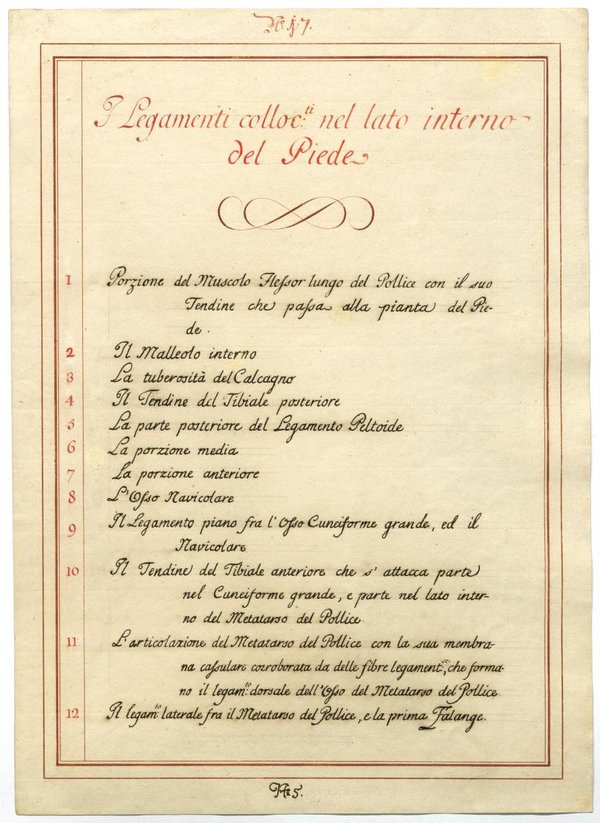 No. 17.
I Legamenti colloc.ti nel lato interno
del Piede
1 Porzione del Muscolo Flessor lungo del Pollice con il suo
Tendine che passa alla pianta del Pie-
de.
2 Il Malleolo interno
3 La tuberosità del Calcagno
4 Il Tendine del Tibiale posteriore
5 La parte posteriore del Legamento Peltoide
6 La porzione media
7 La porzione anteriore
8 L'Osso Navicolare
9 Il Legamento piano fra l'Osso Cuneiforme grande, ed il
Navicolare
10 Il Tendine del Tibiale anteriore che s'attacca parte
nel Cuneiforme grande, e parte nel lato inter-
no del Metatarso del Pollice.
11 L'articolazione del Metatarso del Pollice con la sua membra-
na cassulare corroborata da delle fibre legament.se, che forma-
no il legam.to dorsale dell'Osso del Metatarso del Pollice
12 Il legam.to laterale fra il Metatarso del Pollice, e la prima Falange.
5.